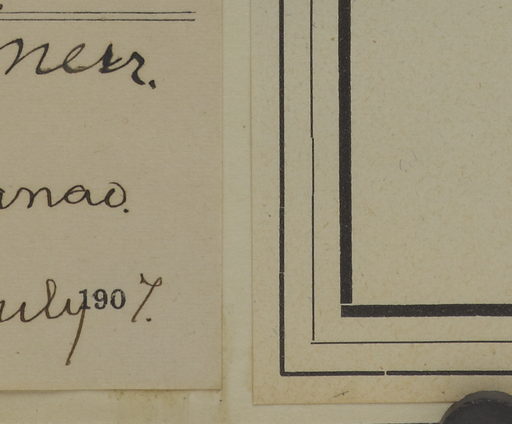 Merr.
anao.
uly 1907.